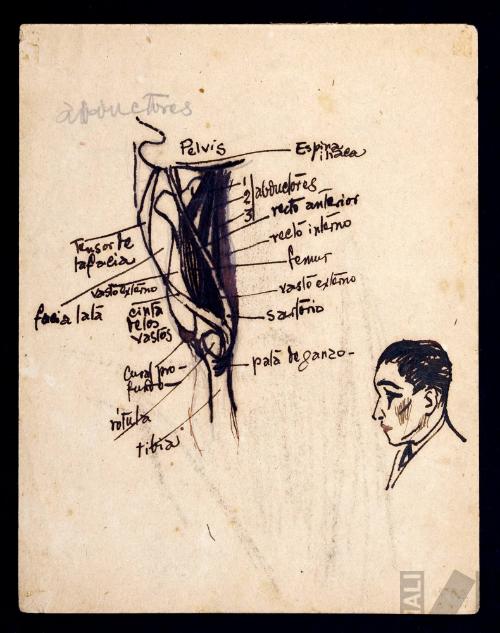 abductores
Pelvis
Espina
iliaca
1
2
3
abductores
recto anterior
recto interno
femur
vasto externo
sartorio
pata de ganzo-
Tensor de
la facia
facia lata
vasto externo
cinta
de los
vastos
Cural pro-
fundo
rótula
tibia
ALI